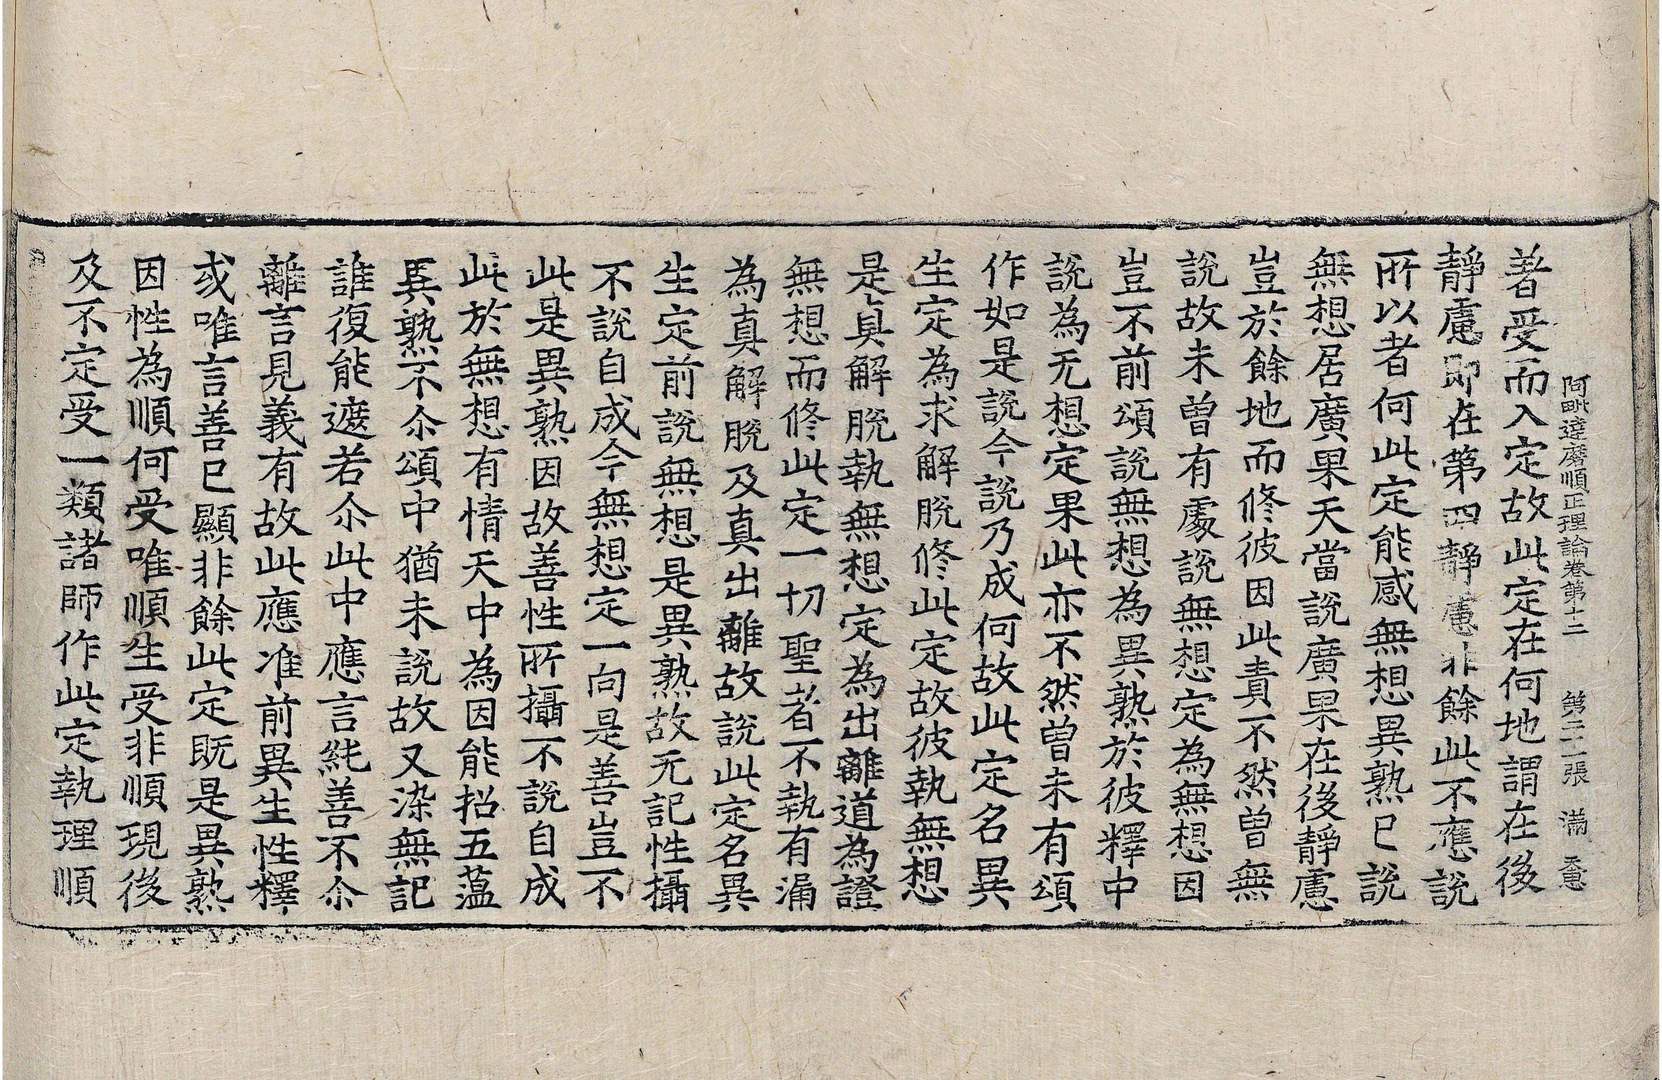 阿毗達磨順正理論卷第十二 第二二張 滿
著受而入定故此定在何地謂在後
靜慮即在第四靜慮非餘此不應說
所以者何此定能感無想異熟已說
無想居廣果天當說廣果在後靜慮
豈於餘地而修彼因此責不然曾無
說故未曾有處說無想定為無想因
豈不前頌說無想為異熟於彼釋中
說為无想定果此亦不然曾未有頌
作如是說今說乃成何故此定名異
生定為求解脫修此定故彼執無想
是真解脫執無想定為出離道為證
無想而修此定一切聖者不執有漏
為真解脫及真出離故說此定名異
生定前說無想是異熟故无記性攝
不說自成今無想定一向是善豈不
此是異熟因故善性所攝不說自成
此於無想有情天中為因能招五蘊
異熟不尒頌中猶未說故又染無記
誰復能遮若尒此中應言純善不尒
離言見義有故此應准前異生性釋
或唯言善已顯非餘此定既是異熟
因性為順何受唯順生受非順現後
及不定受一類諸師作此定執理順